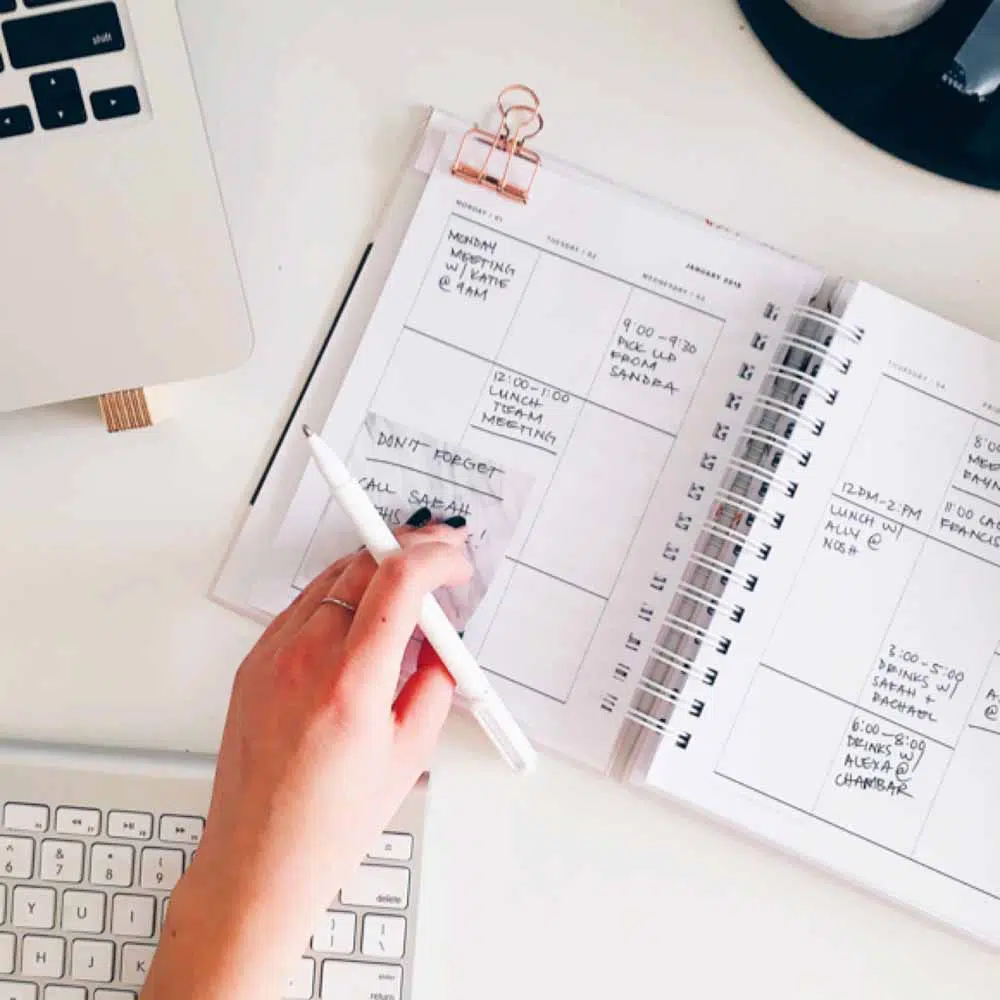 shift
JANUARY 2018
MONDAY / 01
TUESDAY / 02
WEDNESDAY / 03
MONDAY
MEETING
W/ KATIE
@ 9AM
9:00-9:30
PICK UP
FROM
SANDRA
12:00-1:00
LUNCH
TEAM
MEETING
DON'T FORGET
CALL SARAH
THIS
!
THURSDAY / 04
8:00
MEE
11:00
FRANCIS
12PM-2:PM
LUNCH W/
ALLY @
NOSH
3:00-5:00
DRINKS W/
SARAH +
RACHAEL
A
@
6:00-8:00
DRINKS W/
ALEXA @
CHAMBAR
^ 6
& 7
* 8
( 9
Y
U
I
H
J
K
delete
} ]
| \
enter
return